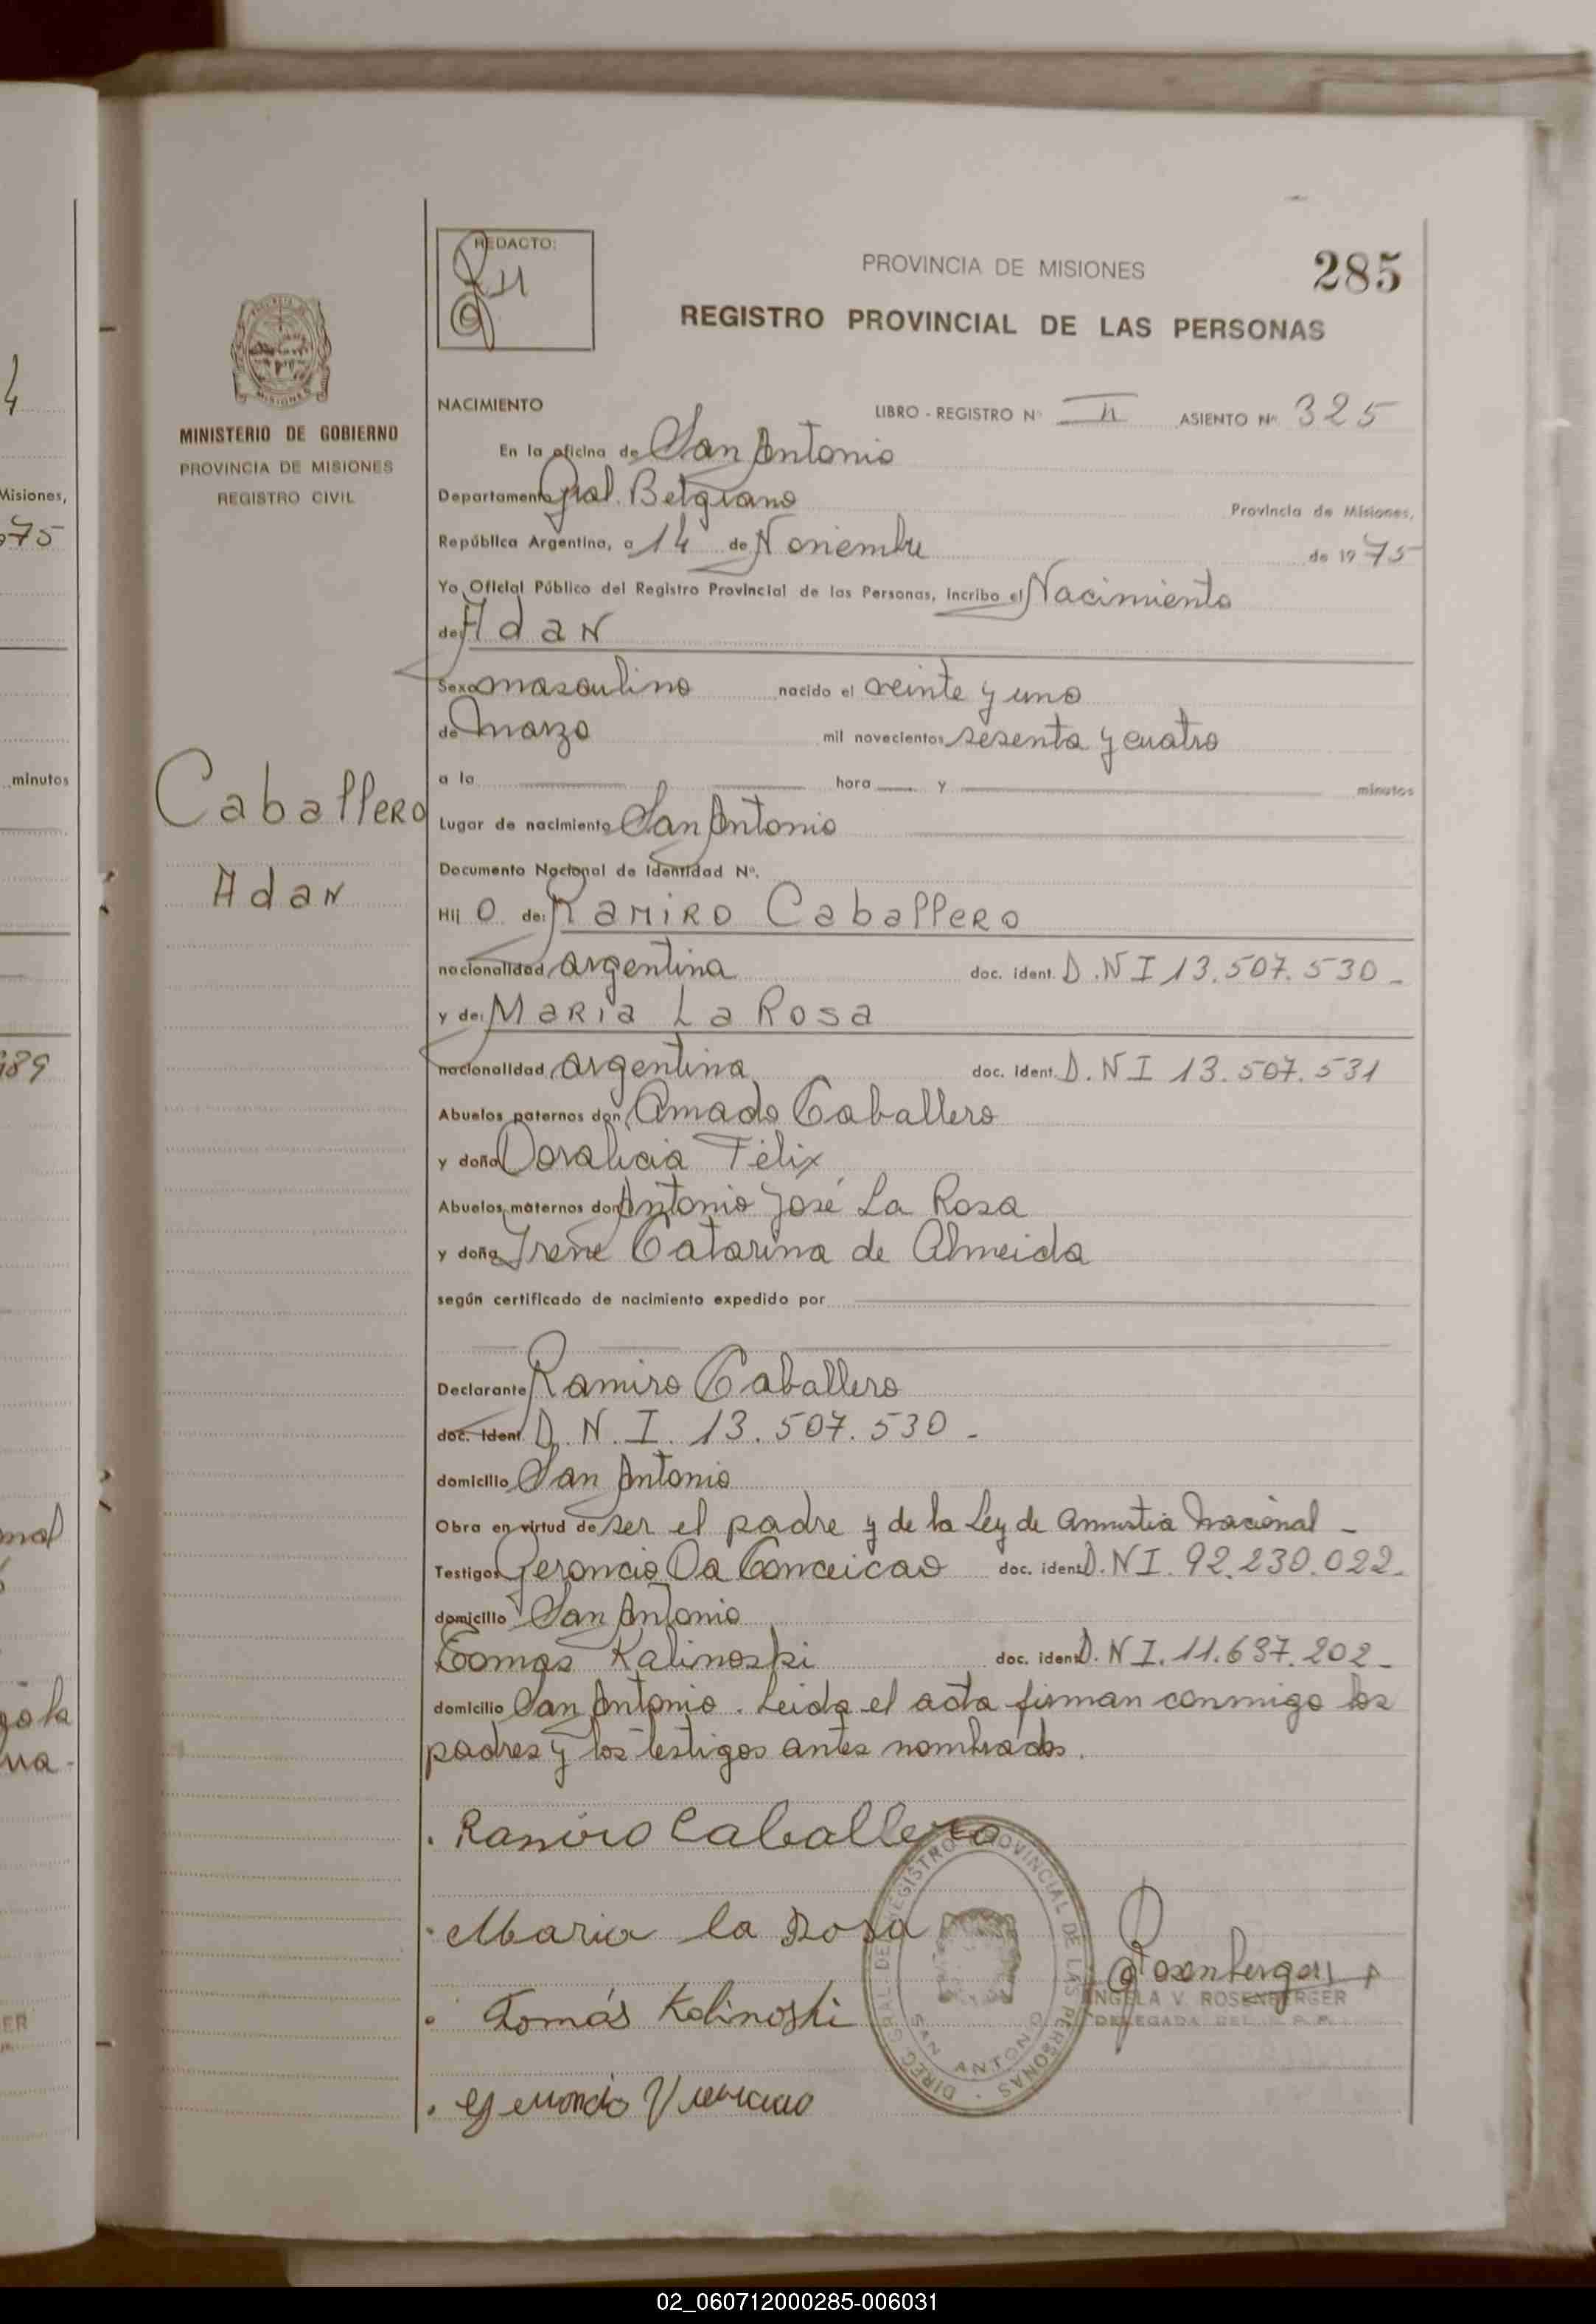 REDACTO:
PROVINCIA DE MISIONES
285
REGISTRO PROVINCIAL DE LAS PERSONAS
MINISTERIO DE GOBIERNO
PROVINCIA DE MISIONES
REGISTRO CIVIL
NACIMIENTO
LIBRO - REGISTRO Nº II ASIENTO Nº 325
En la oficina de San Antonio
Departamento Gral. Belgrano Provincia de Misiones,
República Argentina, a 14 de Noviembre de 1975
Yo Oficial Público del Registro Provincial de las Personas, incribo el Nacimiento
de: Adan
Sexo masculino nacido el veinte y uno
de Marzo mil novecientos sesenta y cuatro
a la hora y minutos
Caballero
Adan
Lugar de nacimiento San Antonio
Documento Nacional de Identidad Nº.
Hij o de: Ramiro Caballero
nacionalidad argentina doc. ident. D.N I 13.507.530 -
y de: Maria La Rosa
nacionalidad argentina doc. ident. D.N I 13.507.531
Abuelos paternos don Amado Caballero
y doña Doralicia Félix
Abuelos maternos don Antonio José La Rosa
y doña Irene Catarina de Almeida
según certificado de nacimiento expedido por
Declarante Ramiro Caballero
doc. ident. D. N. I. 13.507.530 -
domicilio San Antonio
Obra en virtud de ser el padre y de la Ley de Amnistia Nacional -
Testigos Geroncio Da Conceicao doc. ident. D.N I. 92.230.022 -
domicilio San Antonio
Tomas Kalinoski doc. ident. D. N I. 11.637.202 -
domicilio San Antonio. Leida el acta firman conmigo los
padres y los testigos antes nombrados.
Ramiro Caballero
Maria la Rosa
Tomás Kalinoski
DIREC. GRAL. DEL REGISTRO PROVINCIAL DE LAS PERSONAS
SAN ANTONIO
Rosenberger
ANGELA V. ROSENBERGER
DELEGADA DEL R.P.P.
Misiones,
75
minutos
02_060712000285-006031